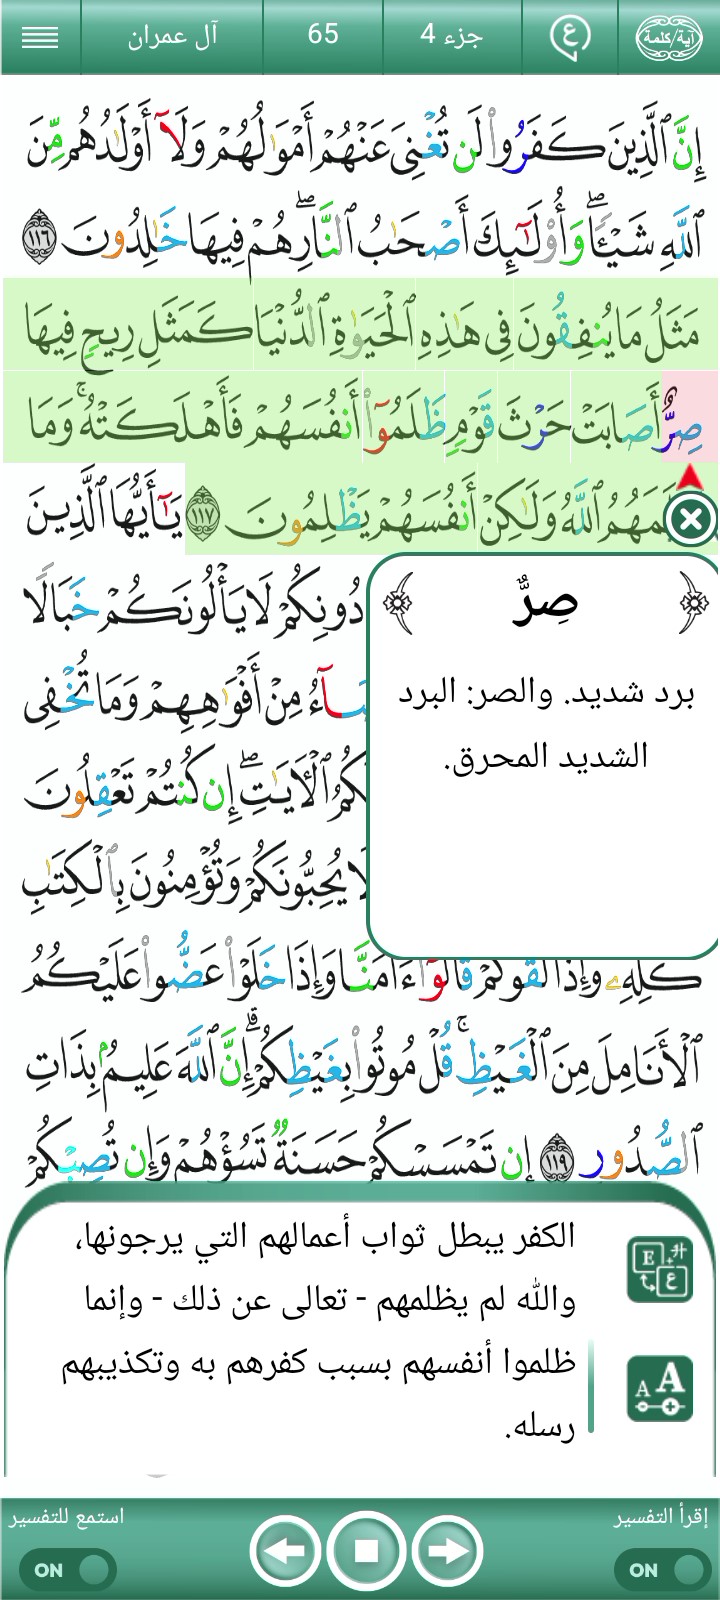 آية/كلمة
ع
جزء 4
65
آل عمران
إِنَّ ٱلَّذِينَ كَفَرُوا۟ لَن تُغْنِىَ عَنْهُمْ أَمْوَٰلُهُمْ وَلَآ أَوْلَٰدُهُم مِّنَ
ٱللَّهِ شَيْـًٔا ۖ وَأُو۟لَٰٓئِكَ أَصْحَٰبُ ٱلنَّارِ ۖ هُمْ فِيهَا خَٰلِدُونَ ١١٦
مَثَلُ مَا يُنفِقُونَ فِى هَٰذِهِ ٱلْحَيَوٰةِ ٱلدُّنْيَا كَمَثَلِ رِيحٍ فِيهَا
صِرٌّ أَصَابَتْ حَرْثَ قَوْمٍ ظَلَمُوٓا۟ أَنفُسَهُمْ فَأَهْلَكَتْهُ ۚ وَمَا
ٱللَّهُ وَلَٰكِنْ أَنفُسَهُمْ يَظْلِمُونَ ١١٧ يَٰٓأَيُّهَا ٱلَّذِينَ
دُونِكُمْ لَا يَأْلُونَكُمْ خَبَالًا
مِنْ أَفْوَٰهِهِمْ وَمَا تُخْفِى
ٱلْـَٔايَٰتِ ۖ إِن كُنتُمْ تَعْقِلُونَ
يُحِبُّونَكُمْ وَتُؤْمِنُونَ بِٱلْكِتَٰبِ
كُلِّهِۦ وَإِذَا لَقُوكُمْ قَالُوٓا۟ ءَامَنَّا وَإِذَا خَلَوْا۟ عَضُّوا۟ عَلَيْكُمُ
ٱلْأَنَامِلَ مِنَ ٱلْغَيْظِ ۚ قُلْ مُوتُوا۟ بِغَيْظِكُمْ ۗ إِنَّ ٱللَّهَ عَلِيمٌۢ بِذَاتِ
ٱلصُّدُورِ ١١٩ إِن تَمْسَسْكُمْ حَسَنَةٌ تَسُؤْهُمْ وَإِن تُصِبْكُمْ
صِرٌّ
برد شديد. والصر: البرد
الشديد المحرق.
الكفر يبطل ثواب أعمالهم التي يرجونها،
والله لم يظلمهم - تعالى عن ذلك - وإنما
ظلموا أنفسهم بسبب كفرهم به وتكذيبهم
رسله.
E ع
A A
إقرأ التفسير
استمع للتفسير
ON
ON